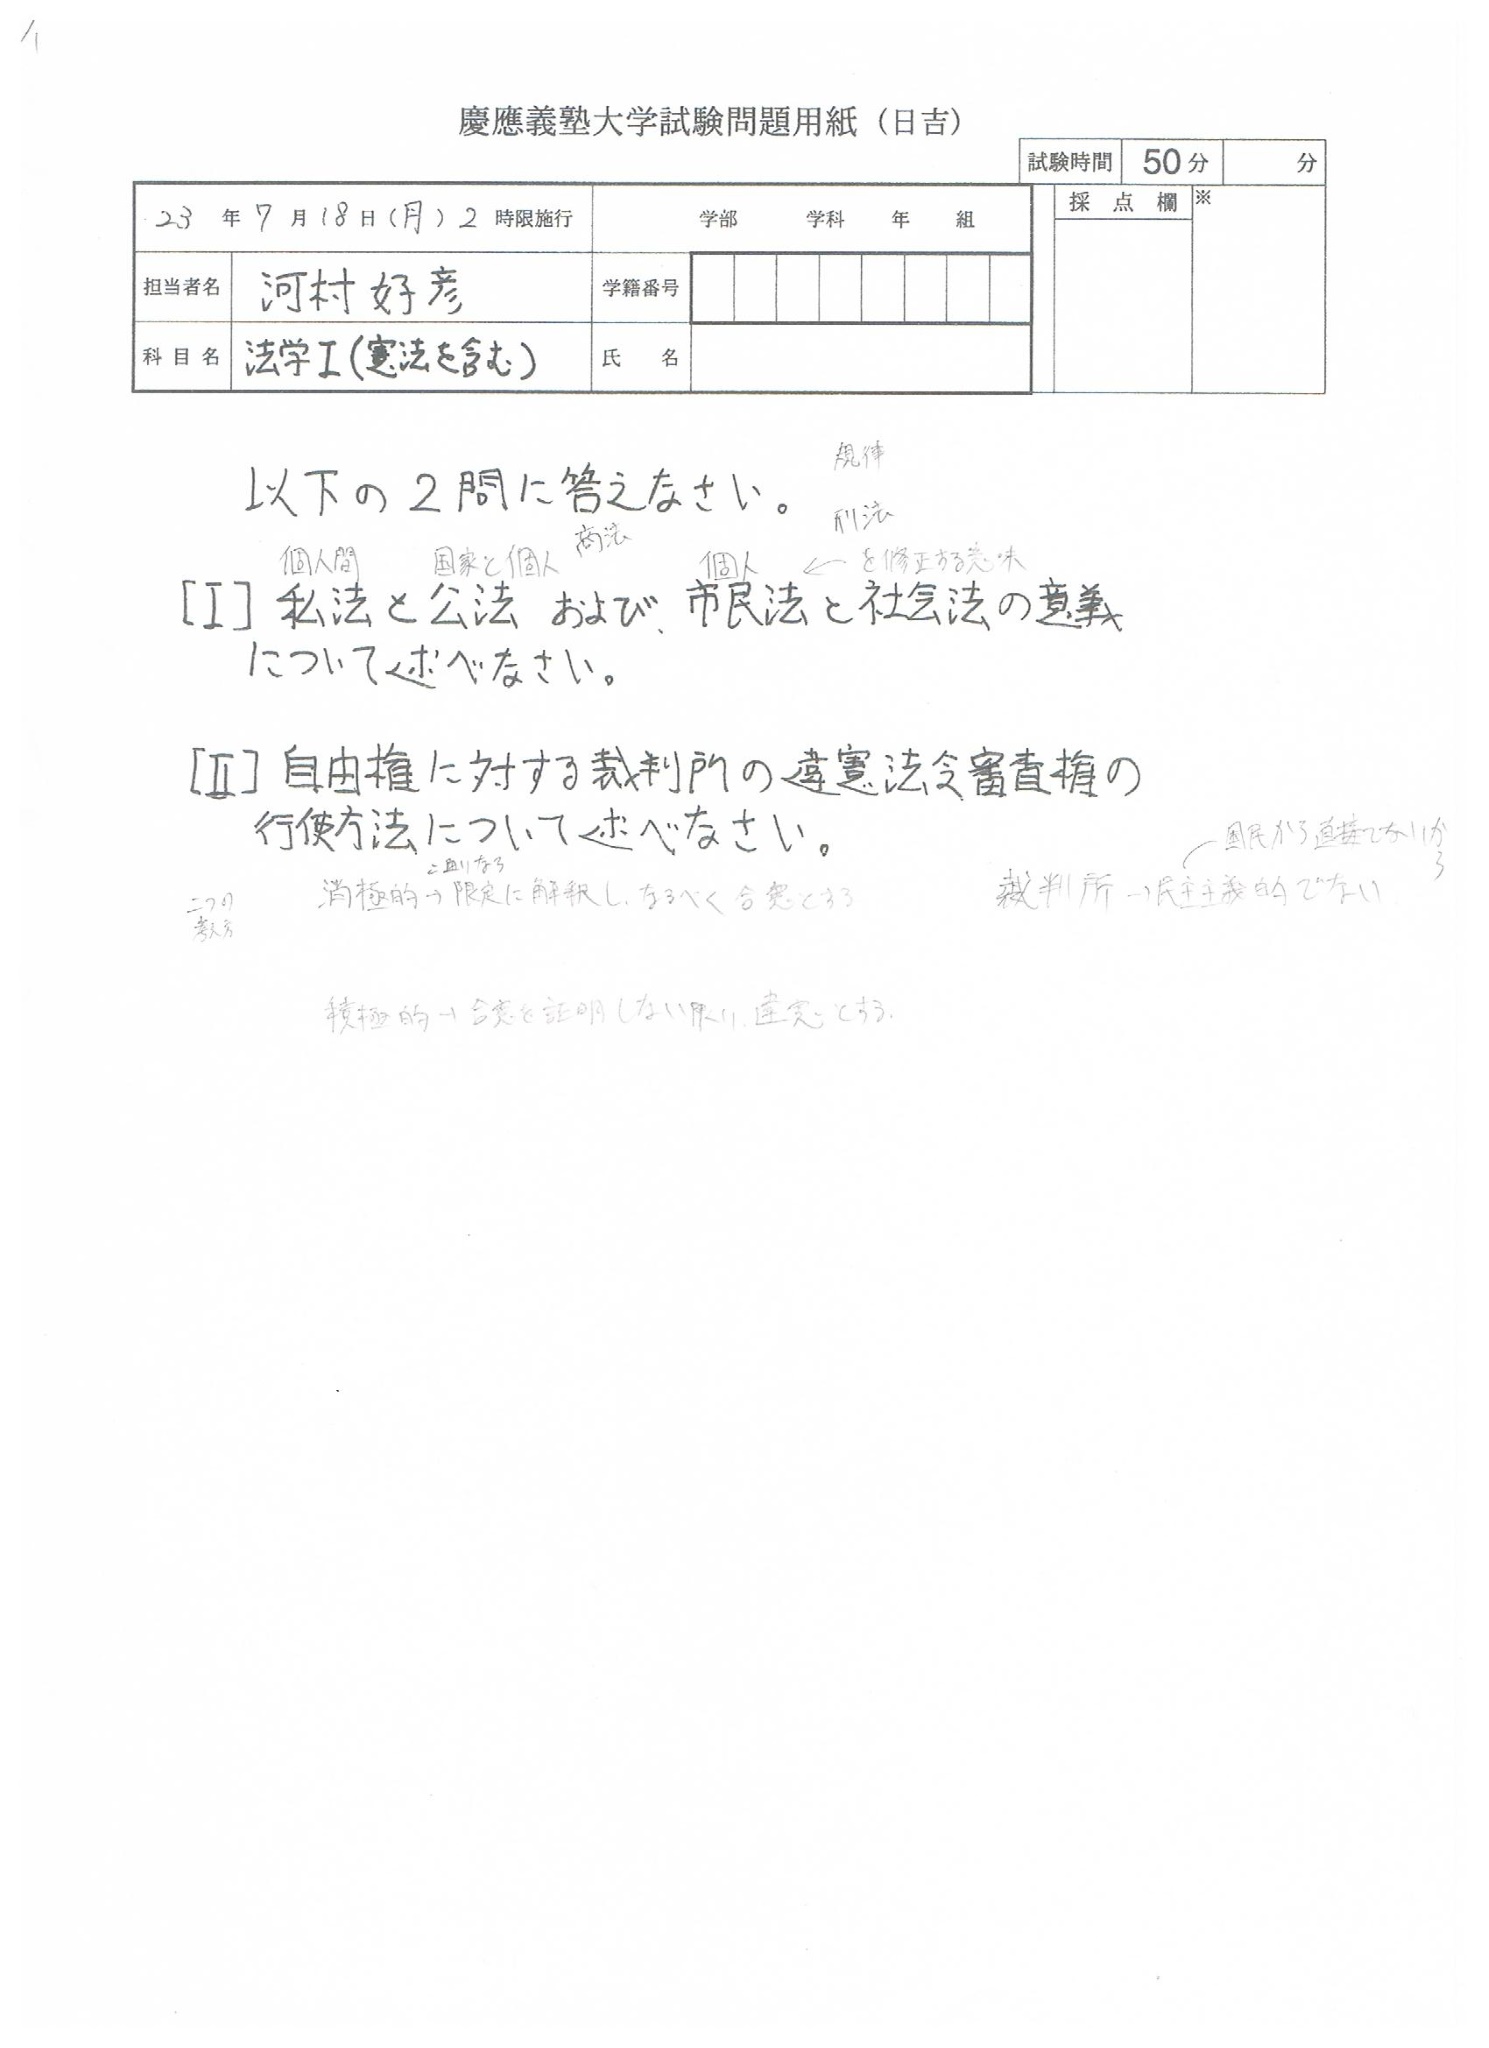 慶應義塾大学試験問題用紙（日吉）
試験時間 50分 分
23年7月18日(月)2時限施行 学部 学科 年 組
採点欄 ※
担当者名 河村好彦 学籍番号
科目名 法学I(憲法を含む) 氏名
規律
以下の2問に答えなさい。
刑法
商法
個人間 国家と個人 個人 ← を修正する意味
[I] 私法と公法 および、市民法と社会法の意義
について述べなさい。
[II] 自由権に対する裁判所の違憲法令審査権の
行使方法について述べなさい。
国民から直接でないから
二つの考え方
消極的→限定に解釈し、なるべく合憲とする
裁判所→民主主義的でない
積極的→合憲を証明しない限り、違憲とする。